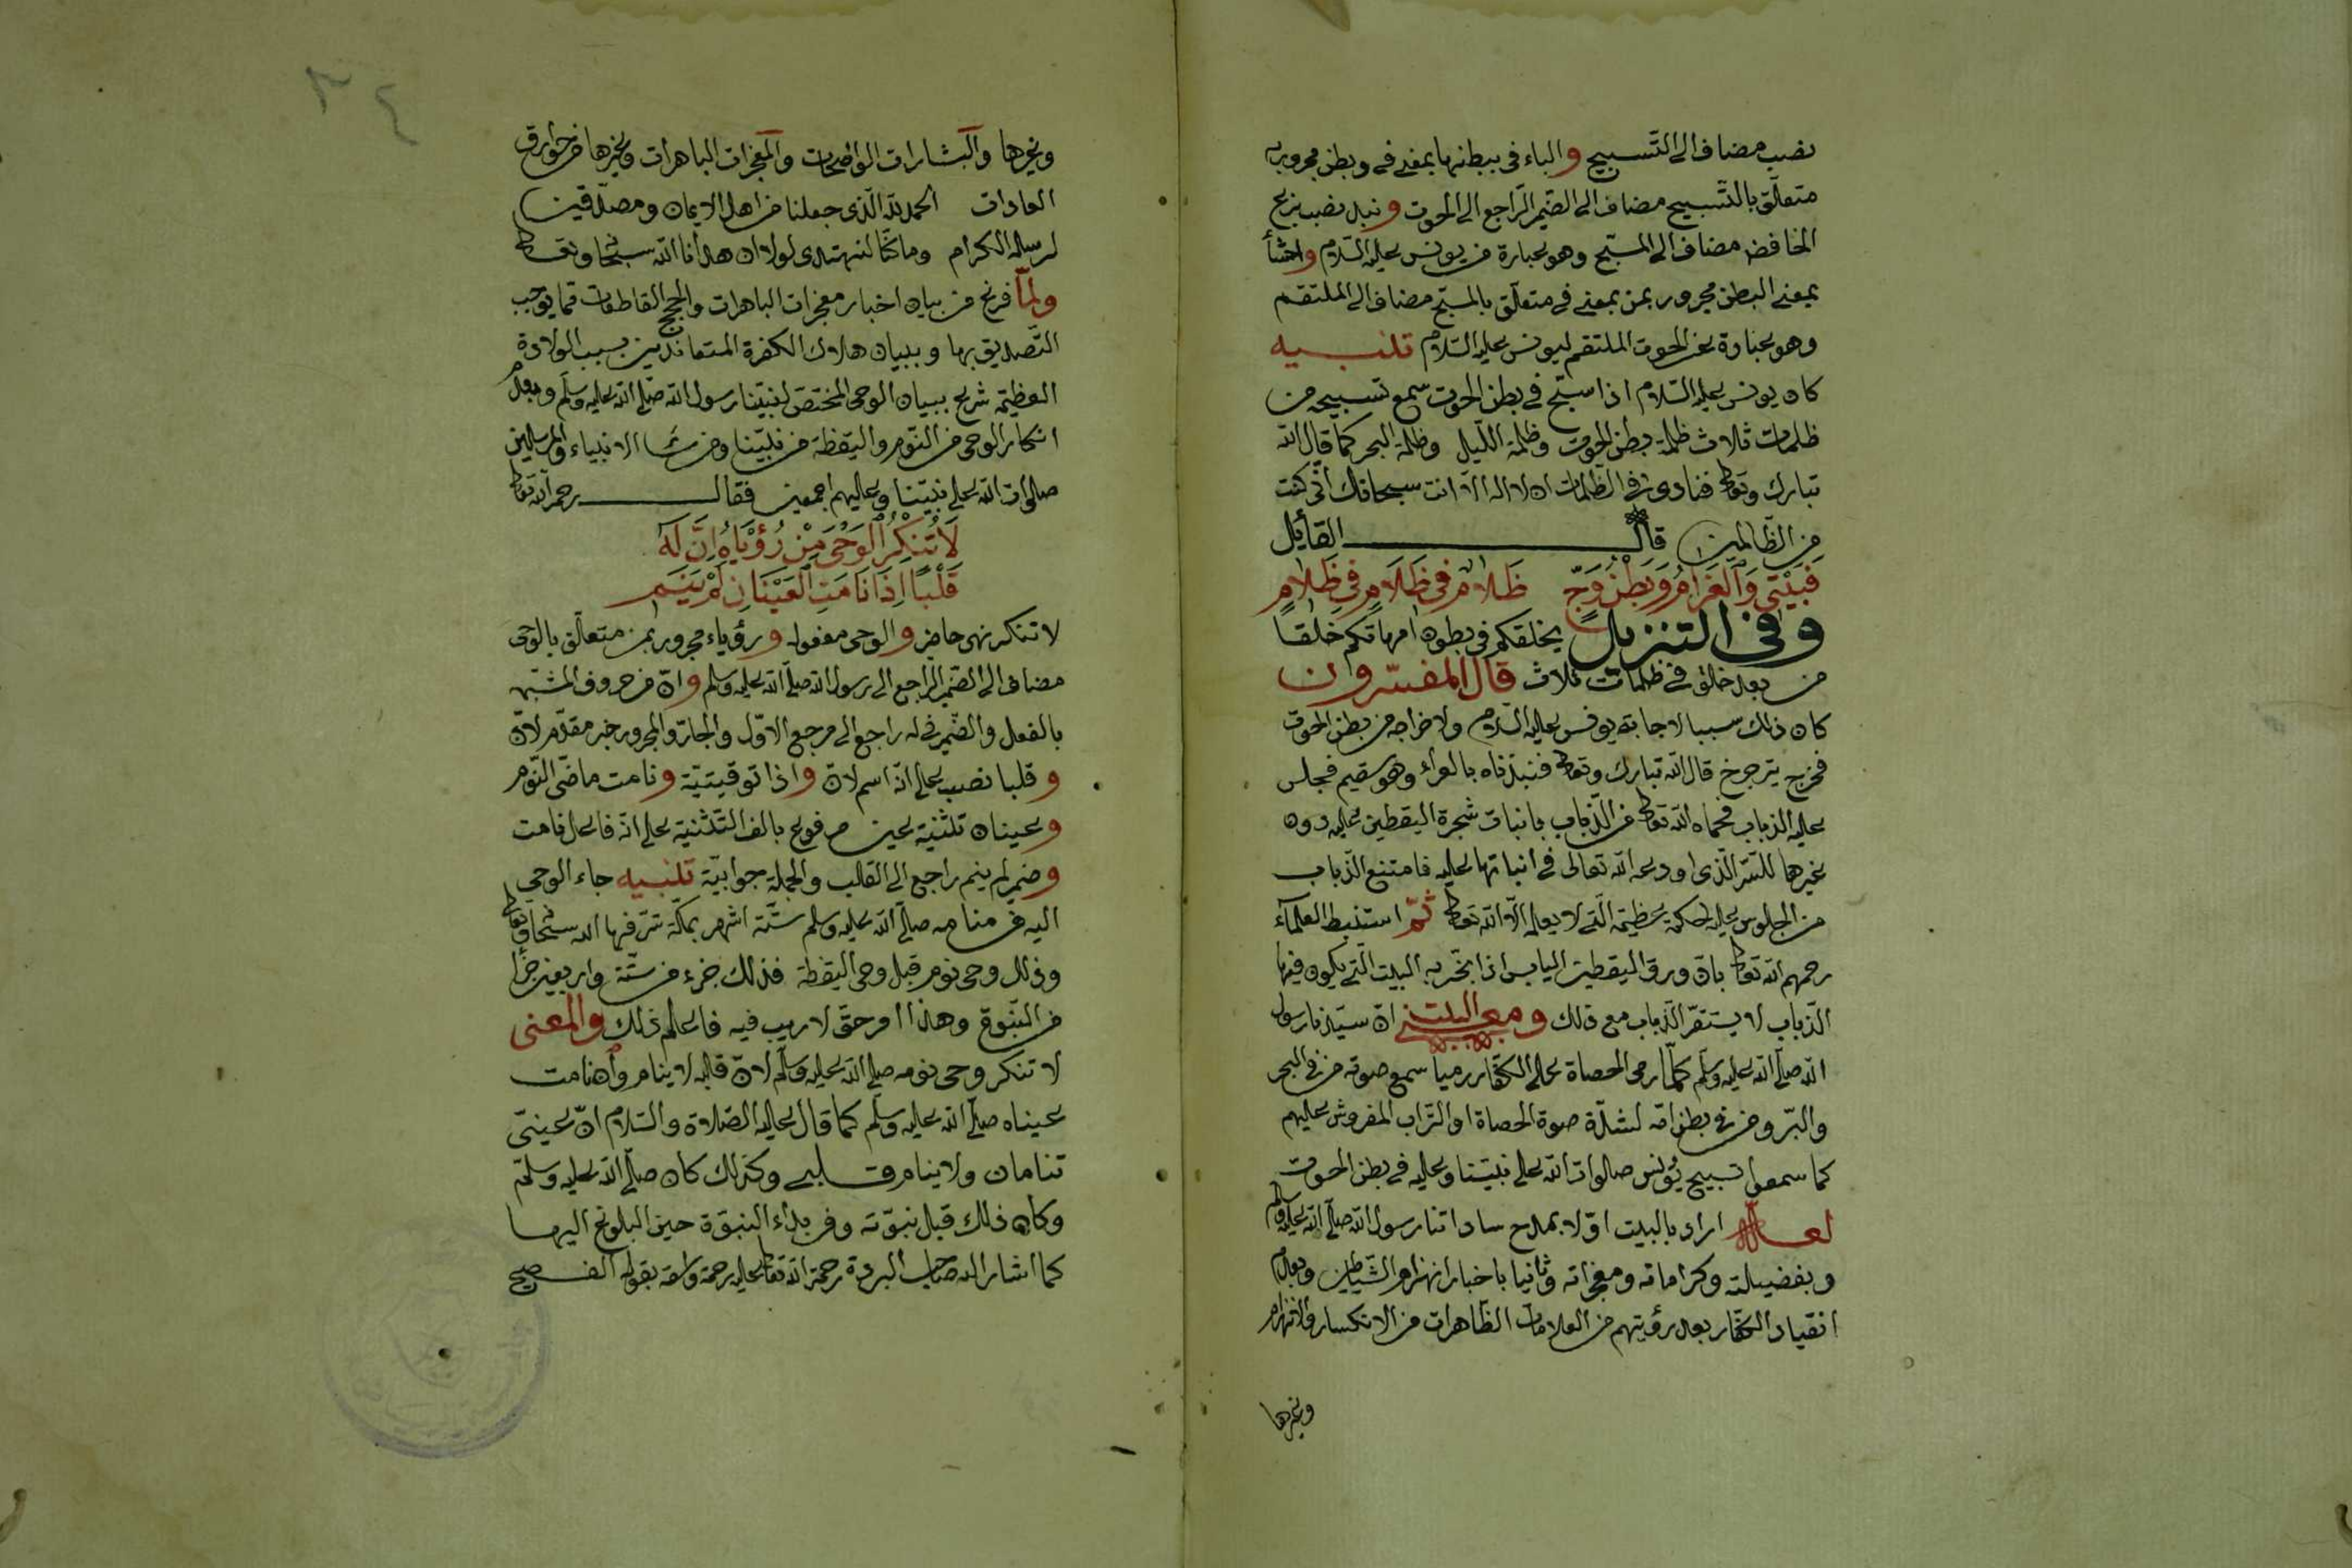 نصب مضاف الى التسبيح والباء فى ببطنها بمعنى فى وبطن مجرور به
متعلّق بالتّسبيح مضاف الى الضّمير الرّاجع الى الحوت ونبذ نصب بنزع
الخافض مضاف الى المسبّح وهو عبارة من يونس عليه السّلام واحشأ
بمعنى البطن مجرور بمن بمعنى فى متعلّق بالمسبّح مضاف الى الملتقم
وهو عبارة عن الحوت الملتقم ليونس عليه السّلام تنبيه
كان يونس عليه السّلام اذا سبّح فى بطن الحوت سمع تسبيحه من
ظلمات ثلاث ظلمة بطن الحوت وظلمة اللّيل وظلمة البحر كما قال الله
تبارك وتعالى فنادى فى الظّلمات ان لا اله الّا انت سبحانك انّى كنت
من الظّالمين قال القائل
فَبَيْتى وَالغَرَامُ وَبَطْنُ وَجٍّ ظَلَامٌ فى ظَلَامٍ فى ظَلَامٍ
وفى التنزيل يخلقكم فى بطون امهاتكم خلقا
من بعد خلق فى ظلمات ثلاث قال المفسّرون
كان ذلك سببا لاجابة يونس عليه السّلام ولاخراجه من بطن الحوت
فخرج يترجرج قال الله تبارك وتعالى فنبذناه بالعراء وهو سقيم فجلس
عليه الذباب فحماه الله تعالى من الذّباب بانبات شجرة اليقطين عليه دون
غيرها للسّرّ الّذى اودعه الله تعالى فى انباتها عليه فامتنع الذّباب
من الجلوس عليه لحكمة عظيمة الّتى لا يعلم الّا الله تعالى ثمّ استنبط العلمآء
رحمهم الله تعالى بانّ ورق اليقطين اليابس اذا بخّر به البيت الّتى يكون فيها
الذّباب لا يستقرّ الذّباب مع ذلك ومعنى البيت انّ سيّدنا رسول
الله صلّى الله عليه وسلّم كلّما رمى الحصاة على الكفّار رميا سمع صوته من فى البحر
والبرّ ومن فى بطن امّه لشدّة صوة الحصاة او التّراب المفروش عليهم
كما سمعوا تسبيح يُونس صلوات الله على نبيّنا وعليه فى بطن الحوت
لعلّه اراد بالبيت اوّلا بمدح ساداتنا رسول الله صلّى الله عليه وسلم
وبفضيلته وكراماته ومعجزاته وثانيا باخبار انهزام الشّياطين وبعدم
انقياد الكفّار بعد رؤيتهم من العلامات الظّاهرات من الانكسار والانهزام
وغيرها
٣٤
وغيرها والبشارات الواضحات والمعجزات الباهرات وغيرها من خوارق
العادات الحمد لله الّذى جعلنا من اهل الايمان ومصدّقين
لرسله الكرام وما كنّا لنهتدى لولا ان هدانا الله سبحانه وتعالى
ولمّا فرغ من بيان اخبار معجزات الباهرات والحجج القاطعات ممّا يوجب
التّصديق بها وببيان هلاك الكفرة المتعاندين بسبب الولادة
العظيمة شرع ببيان الوحى المختصّ لنبيّنا رسول الله صلّى الله عليه وسلّم وبعدم
انكار الوحى من النّوم واليقظة من نبيّنا ومن سائر الانبياء والمرسلين
صلوات الله على نبيّنا وعليهم اجمعين فقال رحمه الله تعالى
لَا تُنْكِرُ الوَحْىَ مِنْ رُؤْيَاهُ اِنَّ لَهُ
قَلْبًا اِذَا نَامَتِ العَيْنَانِ لَمْ يَنَمِ
لا تنكر نهى حاضر والوحى مفعوله ورؤياء مجرور بمن متعلّق بالوحى
مضاف الى الضّمير الراجع الى رسول الله صلّى الله عليه وسلم وانّ من حروف المشبّهة
بالفعل والضّمير فى له راجع الى مرجع الاوّل والجارّ والمجرور خبر مقدّم لانّ
وقلبا نصب على انّه اسم لانّ واذا توقيتيّة ونامت ماضى النّوم
وعينان تثنية عين مرفوع بالف التّثنية على انّه فاعل نامت
وضمير لم ينم راجع الى القلب والجملة جوابيّة تنبيه جاء الوحى
اليه فى منامه صلّى الله عليه وسلم ستّة اشهر بمكّة شرّفها الله سبحانه وتعالى
وذلك وحى نوم قبل وحى اليقظة فذلك جزء من ستّة واربعين جزأ
من النّبوة وهذا امر حقّ لا ريب فيه فاعلم ذلك والمعنى
لا تنكر وحى نومه صلّى الله عليه وسلّم لانّ قلبه لا ينام وان نامت
عيناه صلّى الله عليه وسلّم كما قال عليه الصّلاة والسّلام انّ عينىّ
تنامان ولا ينام قلبى وكذلك كان صلّى الله عليه وسلّم
وكان ذلك قبل نبوّته وفى بدأ النبوّة حين البلوغ اليها
كما اشار اليه صاحب البردة رحمة الله تعالى عليه رحمة واسعة بقوله الفصيح